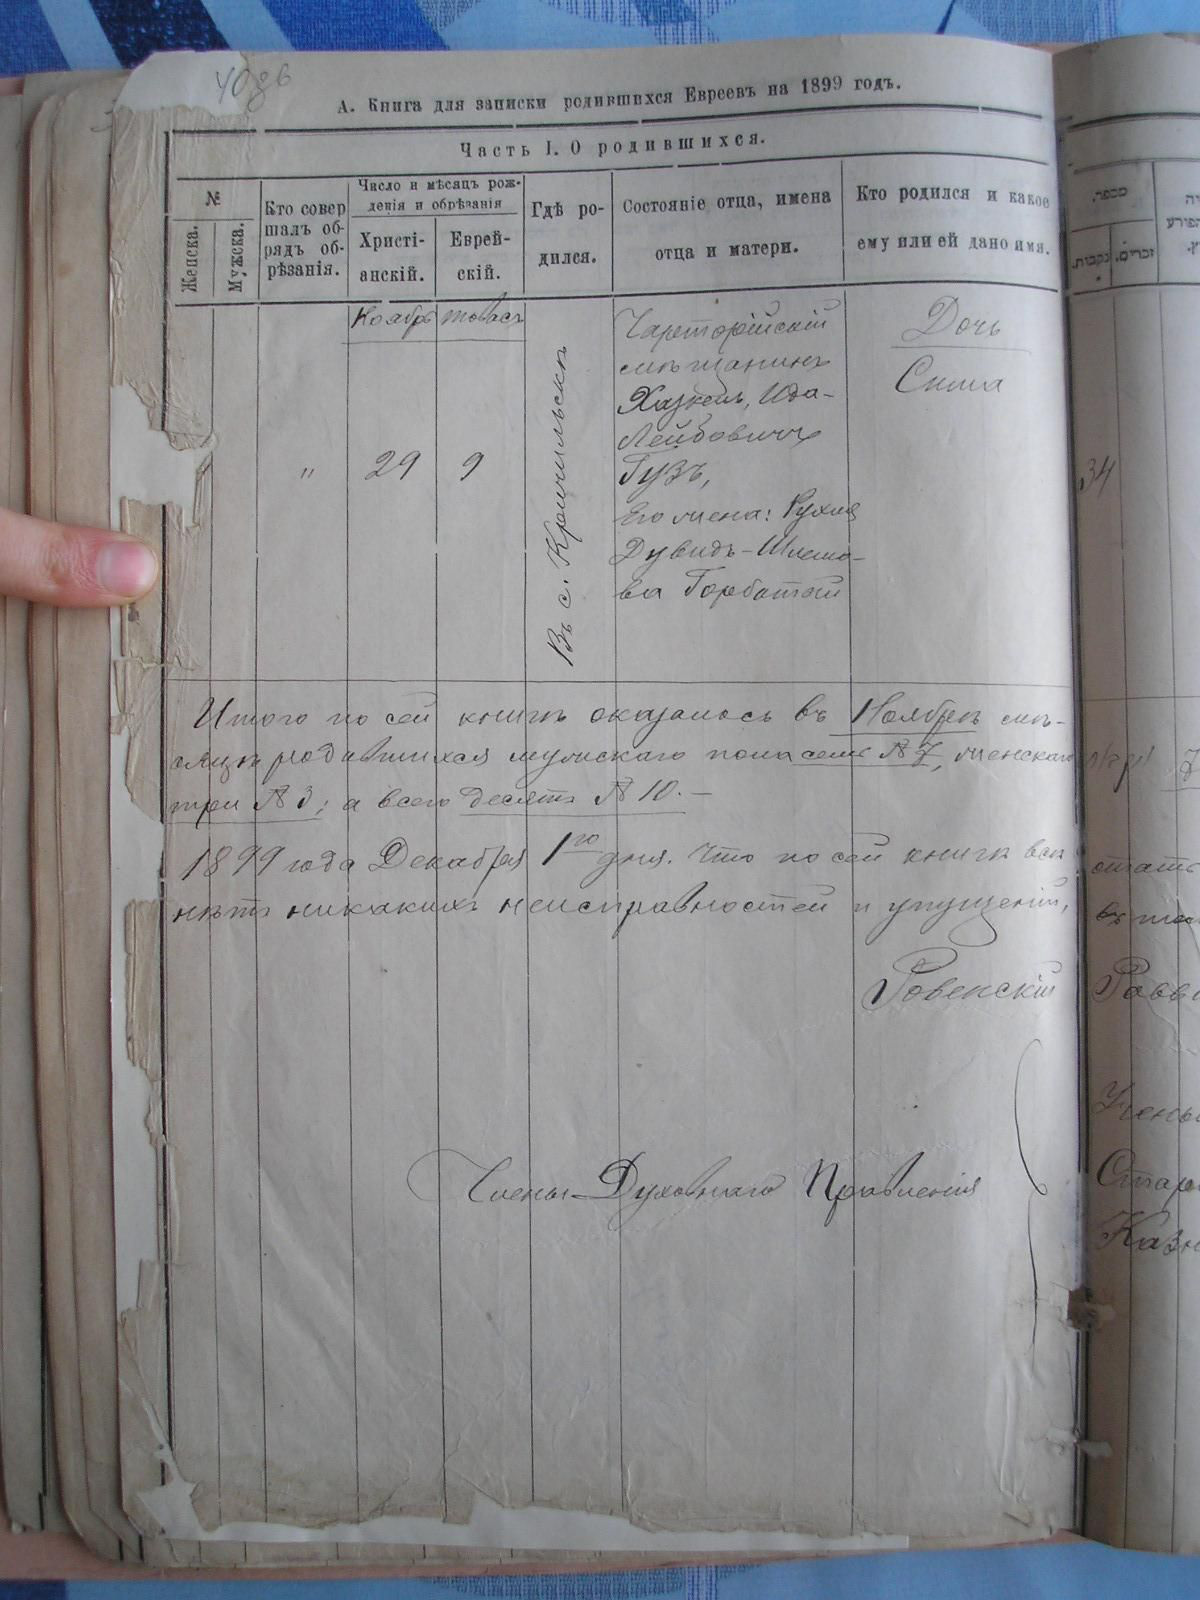 40 об
А. Книга для записки родившихся Евреевъ на 1899 годъ.
Часть I. О родившихся.
№
Женска.
Мужска.
Кто совер
шалъ об-
рядъ об-
рѣзанія.
Число и мѣсяцъ рож-
денія и обрѣзанія
Христі-
анскій.
Еврей-
скій.
Гдѣ ро-
дился.
Состояніе отца, имена
отца и матери.
Кто родился и какое
ему или ей дано имя.
Ноябрь
"
29
9
Въ с.
Чарторійскій
мѣщанинъ
Хазкель, Юда-
Лейбовичъ
Гузъ,
Его жена: Рухля
Дувидъ-Шлемо-
ва Горбатой
Дочь
Сима
Итого по сей книгѣ оказалось въ Ноябрѣ мѣ-
сяцѣ родившихся мужскаго пола семь № 7, женскаго
три № 3; а всего десять № 10. —
1899 года Декабря 1го дня. Что по сей книгѣ всѣ
нѣтъ никакихъ неисправностей и упущеній,
Ровенскій
Члены Духовнаго Правленія
מספר
זכרים.
נקבות.
34
7
Казн